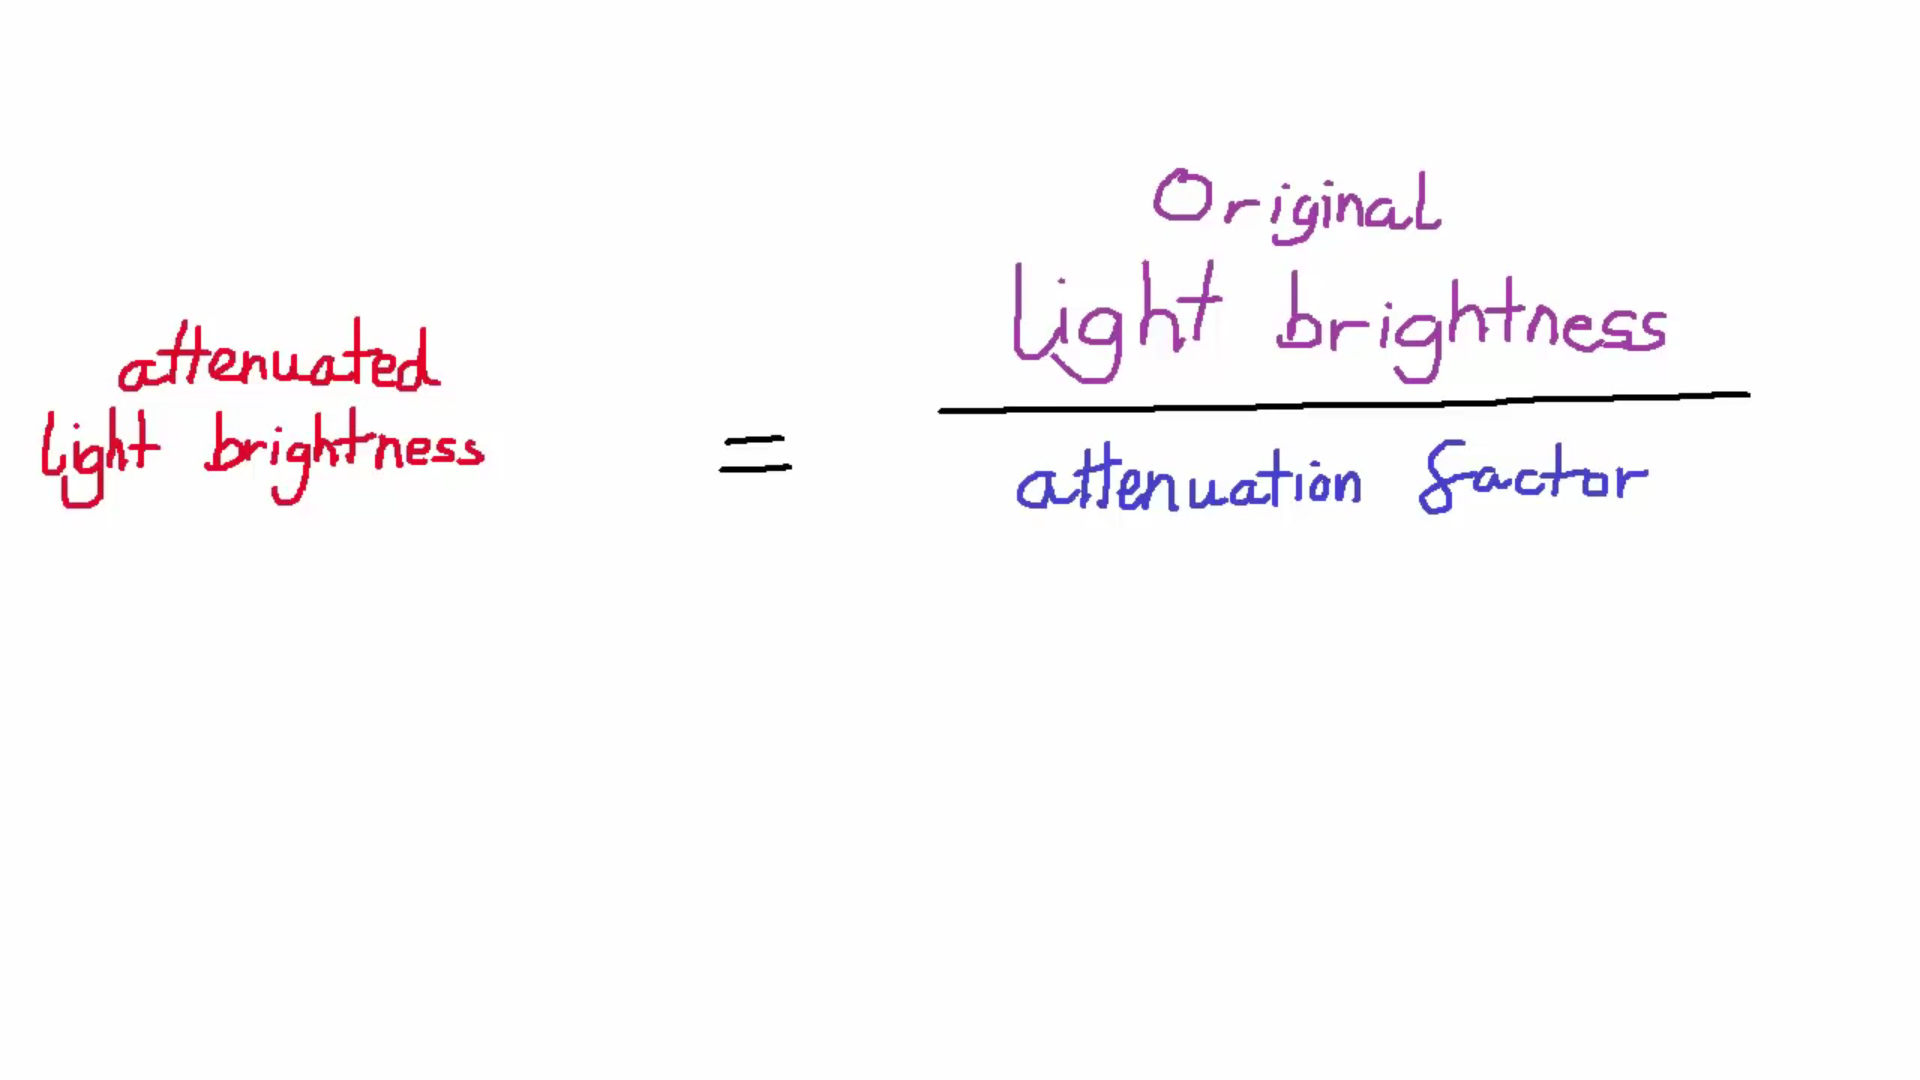 attenuated
light brightness
=
Original
light brightness
attenuation factor